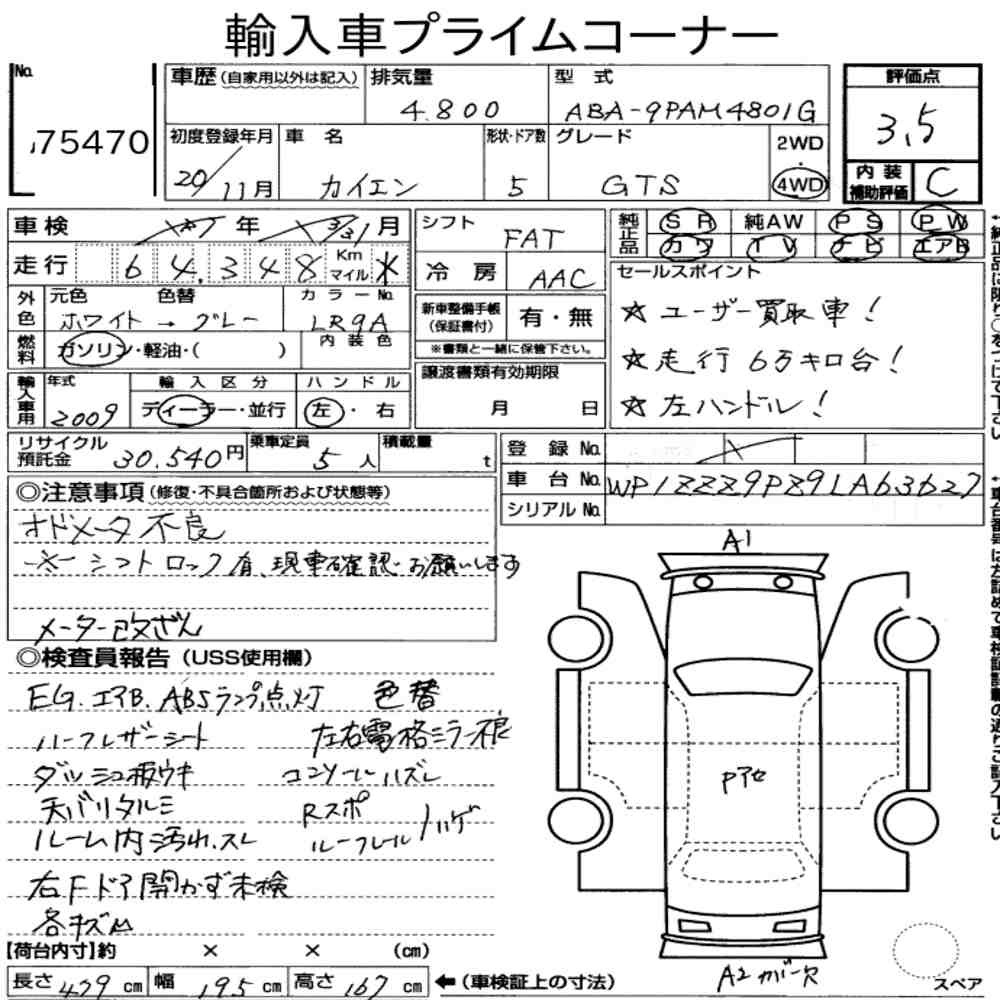 輸入車プライムコーナー
No. 75470
車歴(自家用以外は記入) 排気量 4.800 型式 ABA-9PAM4801G
評価点 3.5
初度登録年月 20/11月 車名 カイエン 形状・ドア数 5 グレード GTS 2WD・4WD
内装補助評価 C
車検 年 月 シフト FAT
純正品 SR 純AW PS PW
カワ TV ナビ エアB
走行 64,348 Km マイル ※
冷房 AAC
セールスポイント
外色 元色 ホワイト → 色替 グレー カラーNo. LR9A
新車整備手帳(保証書付) 有・無
※書類と一緒に保管下さい。
☆ユーザー買取車!
燃料 ガソリン・軽油・( ) 内装色
☆走行6万キロ台!
輸入車用 年式 2009 輸入区分 ディーラー・並行 ハンドル 左・右
譲渡書類有効期限 月 日
☆左ハンドル!
リサイクル預託金 30.540円 乗車定員 5人 積載量 t
登録No.
車台No. WP1ZZZ9PZ9LA63627
シリアルNo.
◎注意事項(修復・不具合箇所および状態等)
オドメータ不良
※シフトロック有、現車確認お願いします
メーター改ざん
◎検査員報告(USS使用欄)
EG.エアB.ABSランプ点灯 色替
ハーフレザーシート 左右電格ミラー不良
ダッシュ板ウキ コンソールハズレ
天バリタルミ Rスポ
ルーム内汚れ.スレ ルーフレール ハゲ
右Fドア開かず未検
各キズ凹
【荷台内寸】約 × × (cm)
長さ 479 cm 幅 195 cm 高さ 167 cm ←(車検証上の寸法)
A1
Pアセ
A2 カバー欠
スペア